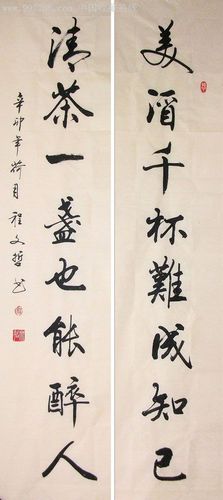 美酒千杯難成知己
清茶一盞也能醉人
辛卯年荷月 程文哲书